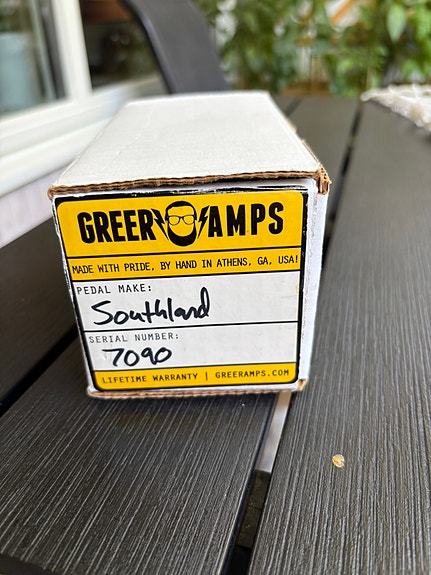 GREER AMPS
MADE WITH PRIDE, BY HAND IN ATHENS, GA, USA!
PEDAL MAKE:
Southland
SERIAL NUMBER:
7090
LIFETIME WARRANTY | GREERAMPS.COM